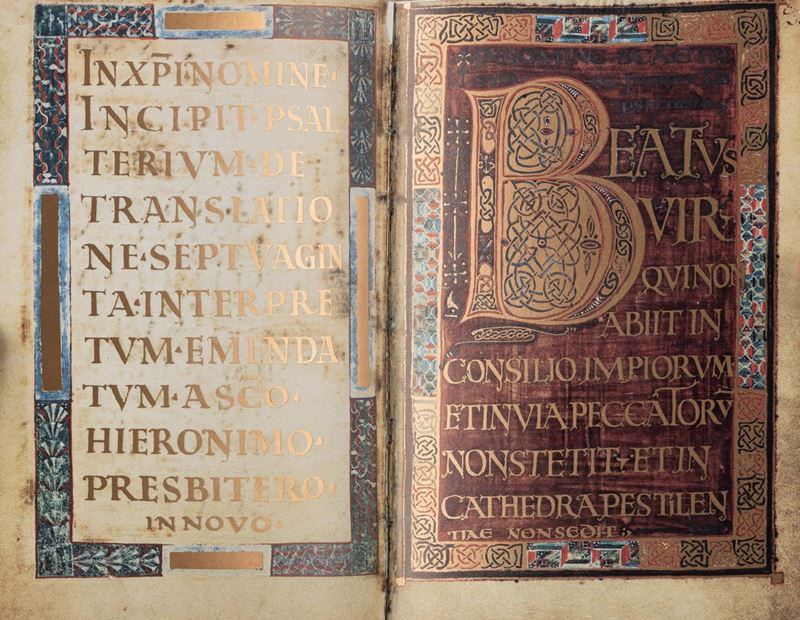 INXP̄I NOMINE·
INCIPIT PSAL
TERIVM·DE
TRANSLATIO
NE·SEPTVAGIN
TA·INTERPRE
TVM·EMENDA
TVM·A SC̄O·
HIERONIMO·
PRESBITERO·
INNOVO·
BEATVS
VIR·
QVI NON
ABIIT IN
CONSILIO IMPIORVM
ET IN VIA PECCATORV̄
NON STETIT· ET IN
CATHEDRA PESTILEN
TIAE NON SEDIT: